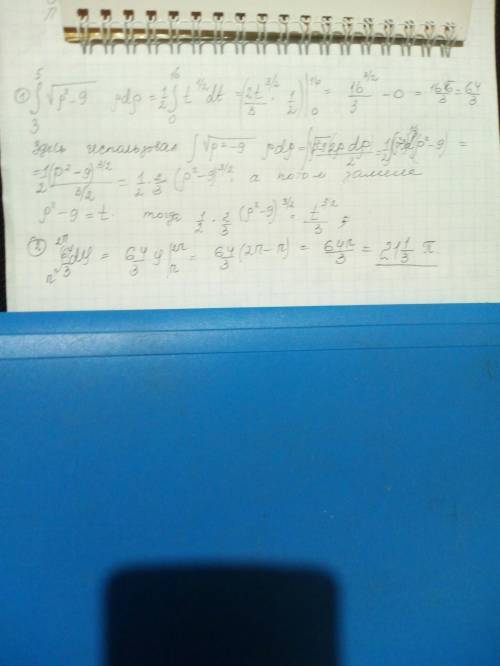 ① ∫₃⁵ √(ρ²-9) ρdρ = 1/2 ∫₀¹⁶ t^(1/2) dt = (2t^(3/2)/3 · 1/2) |₀¹⁶ = 16^(3/2)/3 - 0 = = 64/3
здесь использовал ∫ √(ρ²-9) ρdρ = =
= 1/2 (ρ²-9)^(3/2)/(3/2) = 1/2 · 2/3 (ρ²-9)^(3/2), а потом замена
ρ²-9 = t. тогда 1/2 · 2/3 (ρ²-9)^(3/2) = t^(3/2)/3 ;
② ∫_π^2π 64/3 dφ = 64/3 φ |_π^2π = 64/3 (2π-π) = 64π/3 = 21 1/3 π.